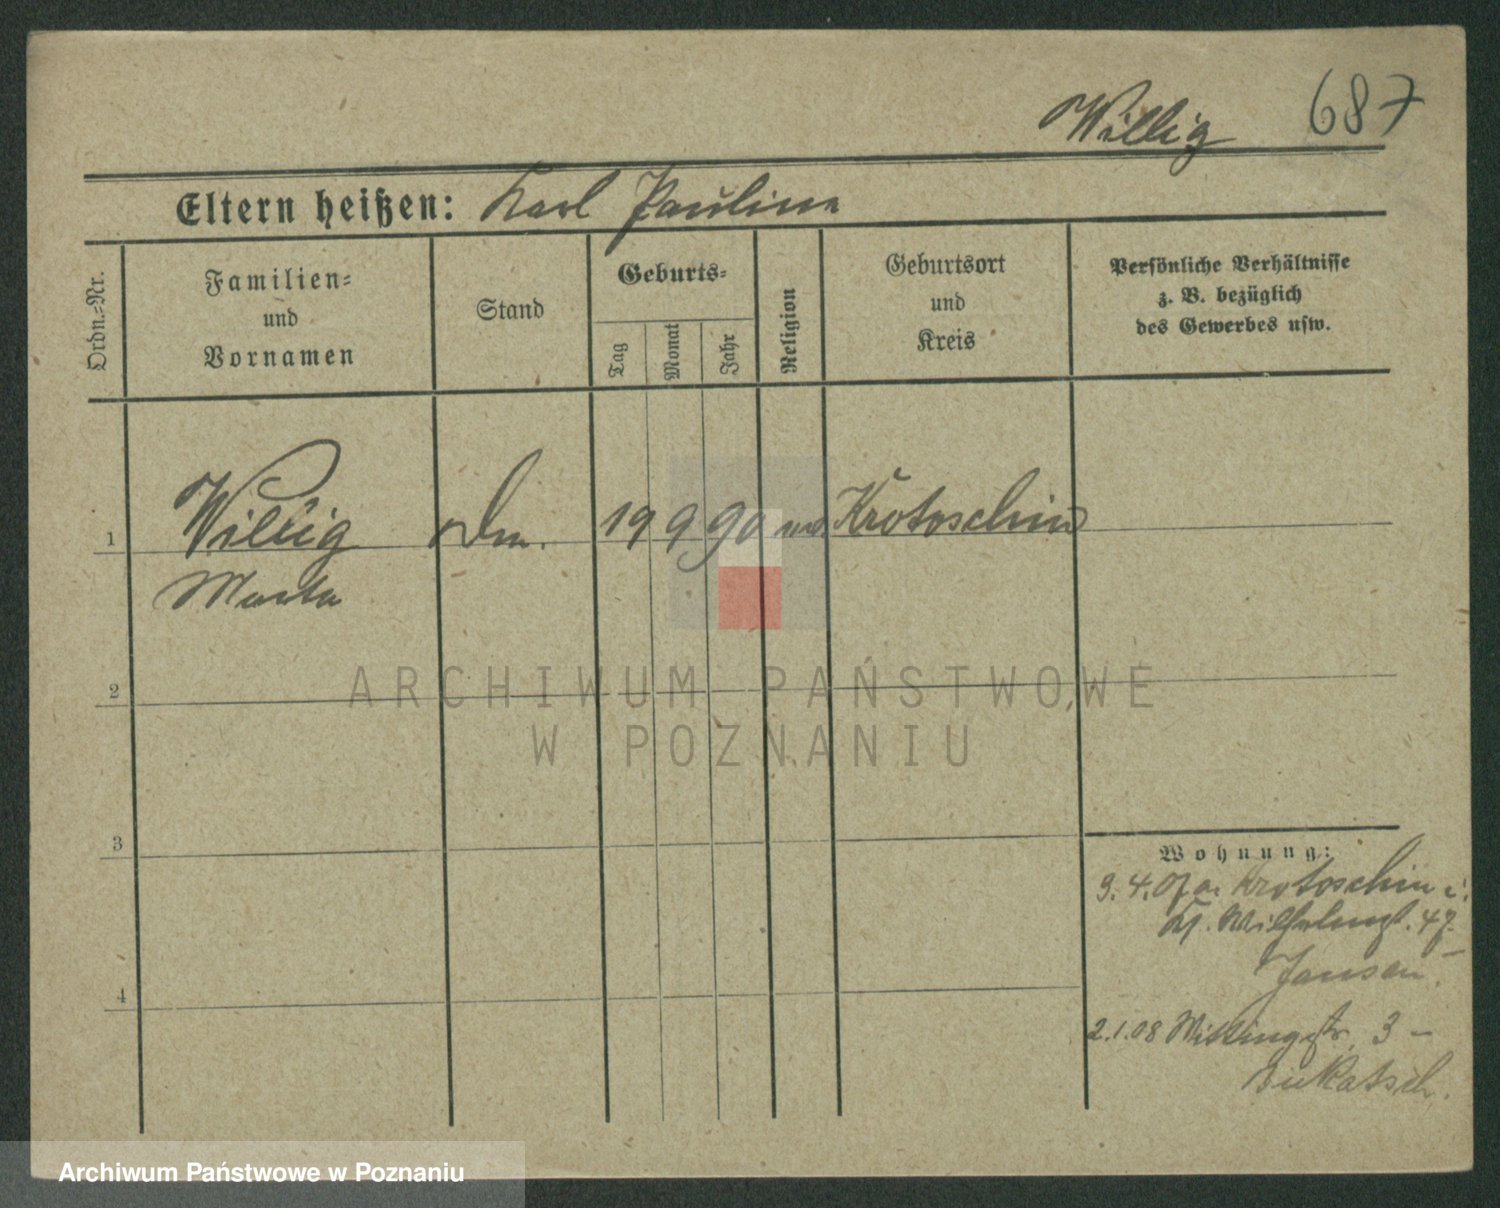 Willig 687
Eltern heißen: Karl Pauline
Ordn.-Nr.
Familien-
und
Vornamen
Stand
Geburts-
Tag
Monat
Jahr
Religion
Geburtsort
und
Kreis
Persönliche Verhältnisse
z. B. bezüglich
des Gewerbes usw.
1 Willig 19 9 90 Krotoschin
Marta
2
3
4
Wohnung:
9.4.07 a. Krotoschin i.
Kl. Wilhelmst. 47.
Jansen.
2.1.08 Wikingstr. 3 –
ARCHIWUM PAŃSTWOWE
W POZNANIU
Archiwum Państwowe w Poznaniu